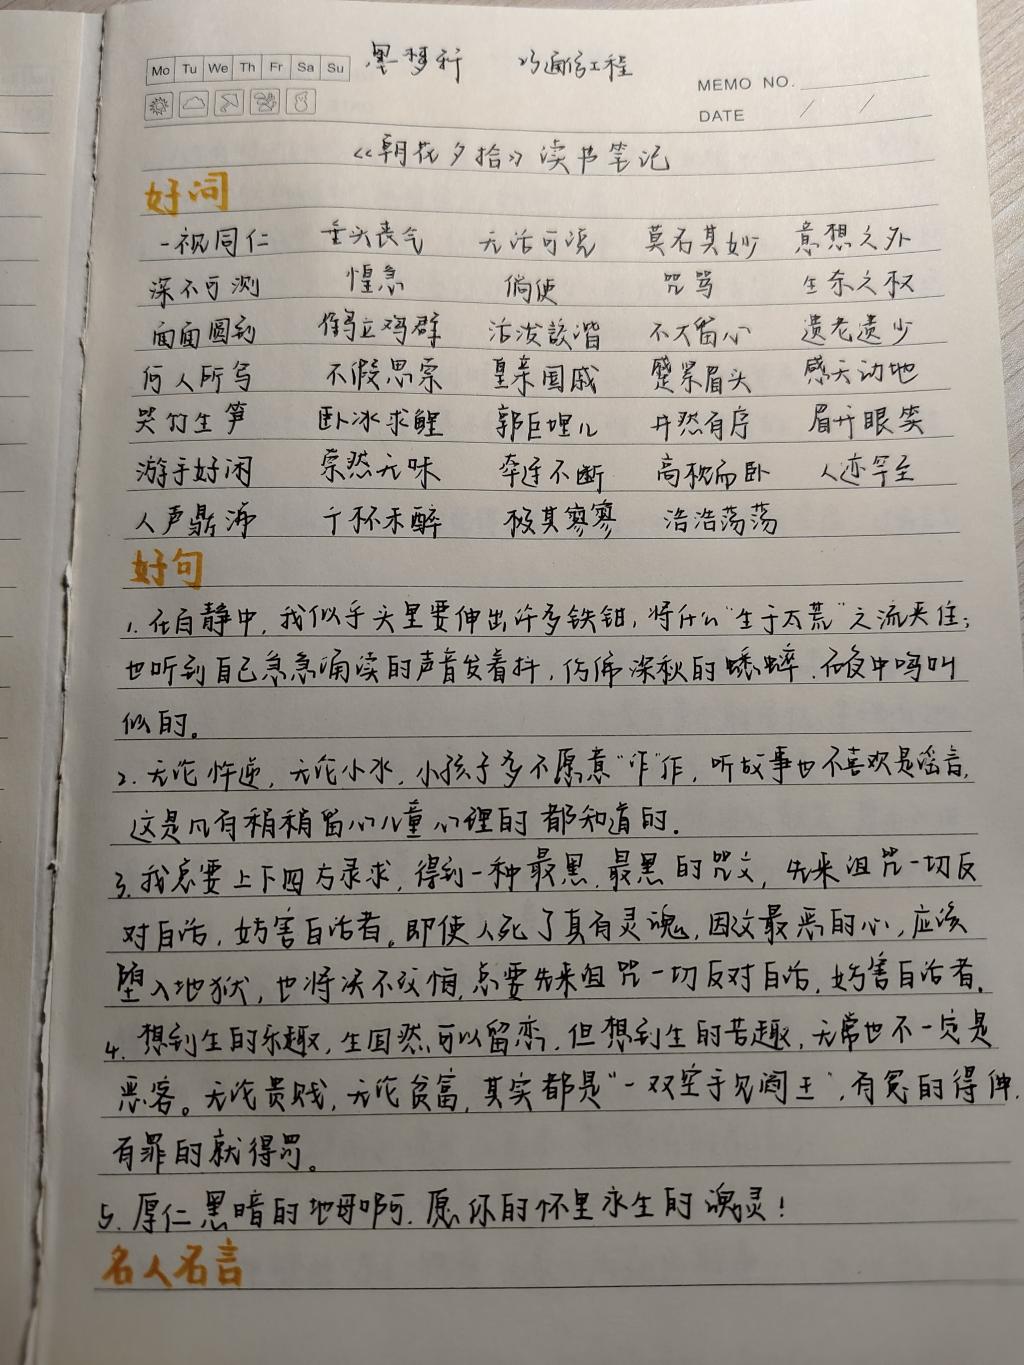 Mo Tu We Th Fr Sa Su 梦 通信工程
MEMO NO.
DATE / /
《朝花夕拾》读书笔记
好词
一视同仁 垂头丧气 无话可说 莫名其妙 意想之外
深不可测 惶急 倘使 咒骂 生杀之权
面面圆到 鹤立鸡群 活泼诙谐 不大留心 遗老遗少
何人所写 不假思索 皇亲国戚 蹙紧眉头 感天动地
哭竹生笋 卧冰求鲤 郭巨埋儿 井然有序 眉开眼笑
游手好闲 索然无味 牵连不断 高枕而卧 人迹罕至
人声鼎沸 亍杯未醉 极其寥寥 浩浩荡荡
好句
1. 在百静中，我似乎头里要伸出许多铁钳，将什么“生于太荒”之流夹住；
也听到自己急急诵读的声音发着抖，仿佛深秋的蟋蟀，在夜中鸣叫
似的。
2. 无论忤逆，无论小水，小孩子多不愿意“诈”作，听故事也不喜欢是谣言，
这是凡有稍稍留心儿童心理的都知道的。
3. 我总要上下四方寻求，得到一种最黑，最黑的咒文，先来诅咒一切反
对白话，妨害白话者。即使人死了真有灵魂，因这最恶的心，应该
堕入地狱，也将决不改悔，总要先来诅咒一切反对白话，妨害白话者。
4. 想到生的乐趣，生固然可以留恋，但想到生的苦趣，无常也不一定是
恶客。无论贵贱，无论贫富，其实都是“一双空手见阎王”，有冤的得伸，
有罪的就得罚。
5. 厚仁黑暗的地母啊，愿你的怀里永生的魂灵！
名人名言